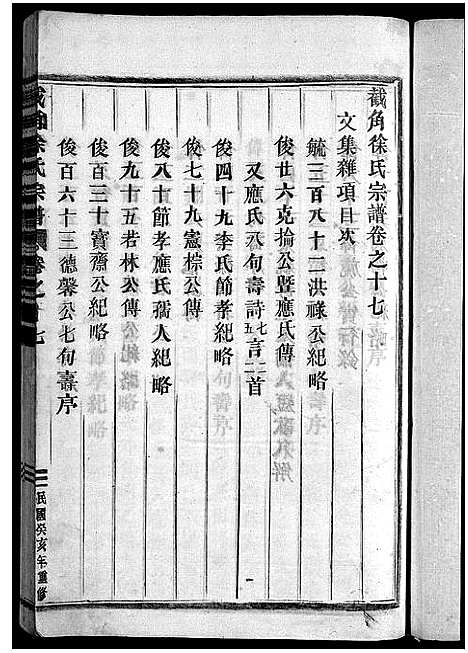 截角徐氏宗譜卷之十七
文集雜項目次
毓三百八十二洪祿公紀略
俊廿六克掄公暨應氏傳
又應氏六旬壽詩七五言二首
俊四十九李氏節孝紀略
俊七十九憲棕公傳
俊八十節孝應氏孺人紀略
俊九十五若林公傳
俊百三十寶齋公紀略
俊百六十三德馨公七旬壽序
截角徐氏宗譜 卷之十七
民國癸亥年重修